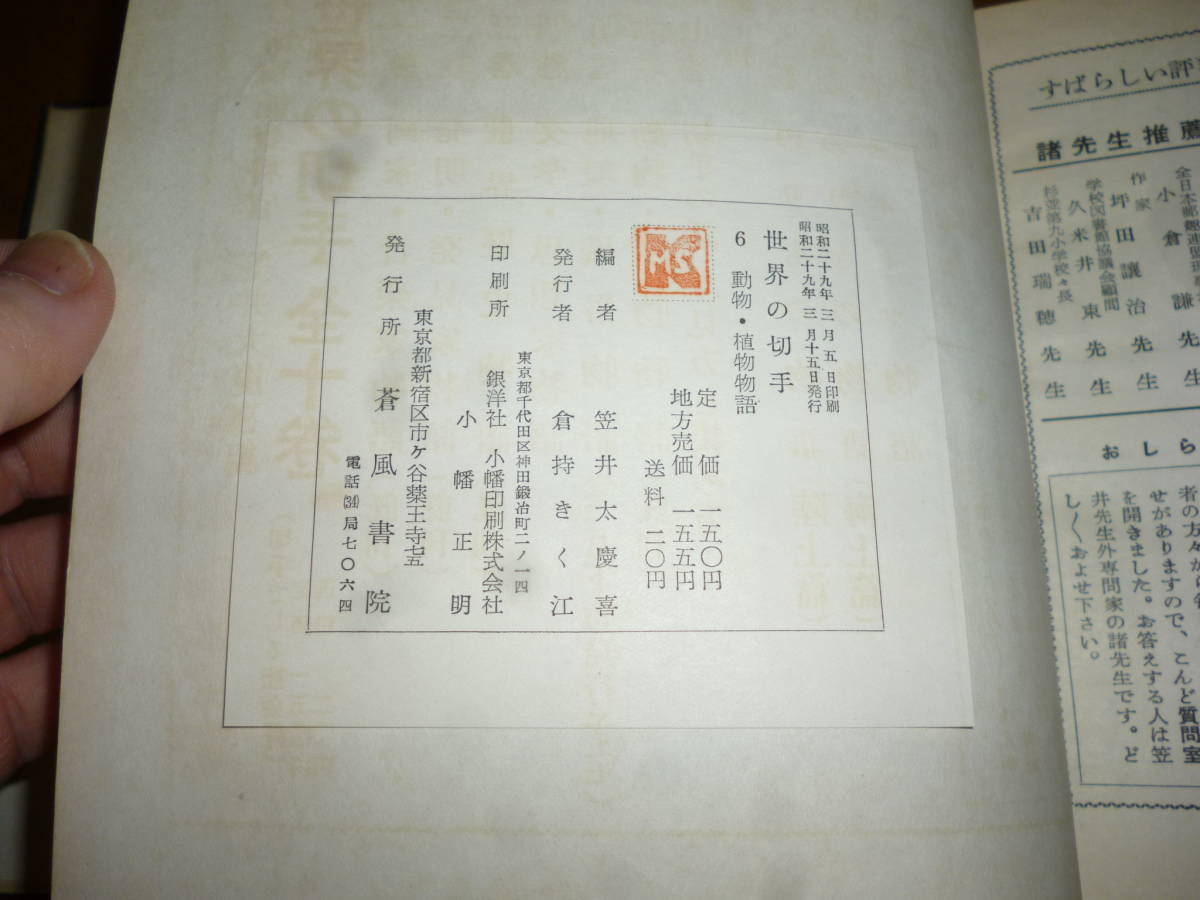 すばらしい評
諸先生推薦
小倉謙先生
作家
坪田讓治先生
学校図書館協議会顧問
久米井東先生
杉並第九小学校々長
吉田瑞穂先生
おしら
せがありますので、こんど質問室
を開きました。お答えする人は笠
井先生外専門家の諸先生です。ど
し〳〵およせ下さい。
昭和二十九年三月五日印刷
昭和二十九年三月十五日発行
世界の切手
6 動物・植物物語
定価 一五〇円
地方売価 一五五円
送料 二〇円
MS
編者 笠井太慶喜
発行者 倉持きく江
東京都千代田区神田鍛冶町二ノ一四
印刷所 銀洋社 小幡印刷株式会社
小幡正明
東京都新宿区市ケ谷薬王寺七五
発行所 蒼風書院
電話(34)局七〇六四